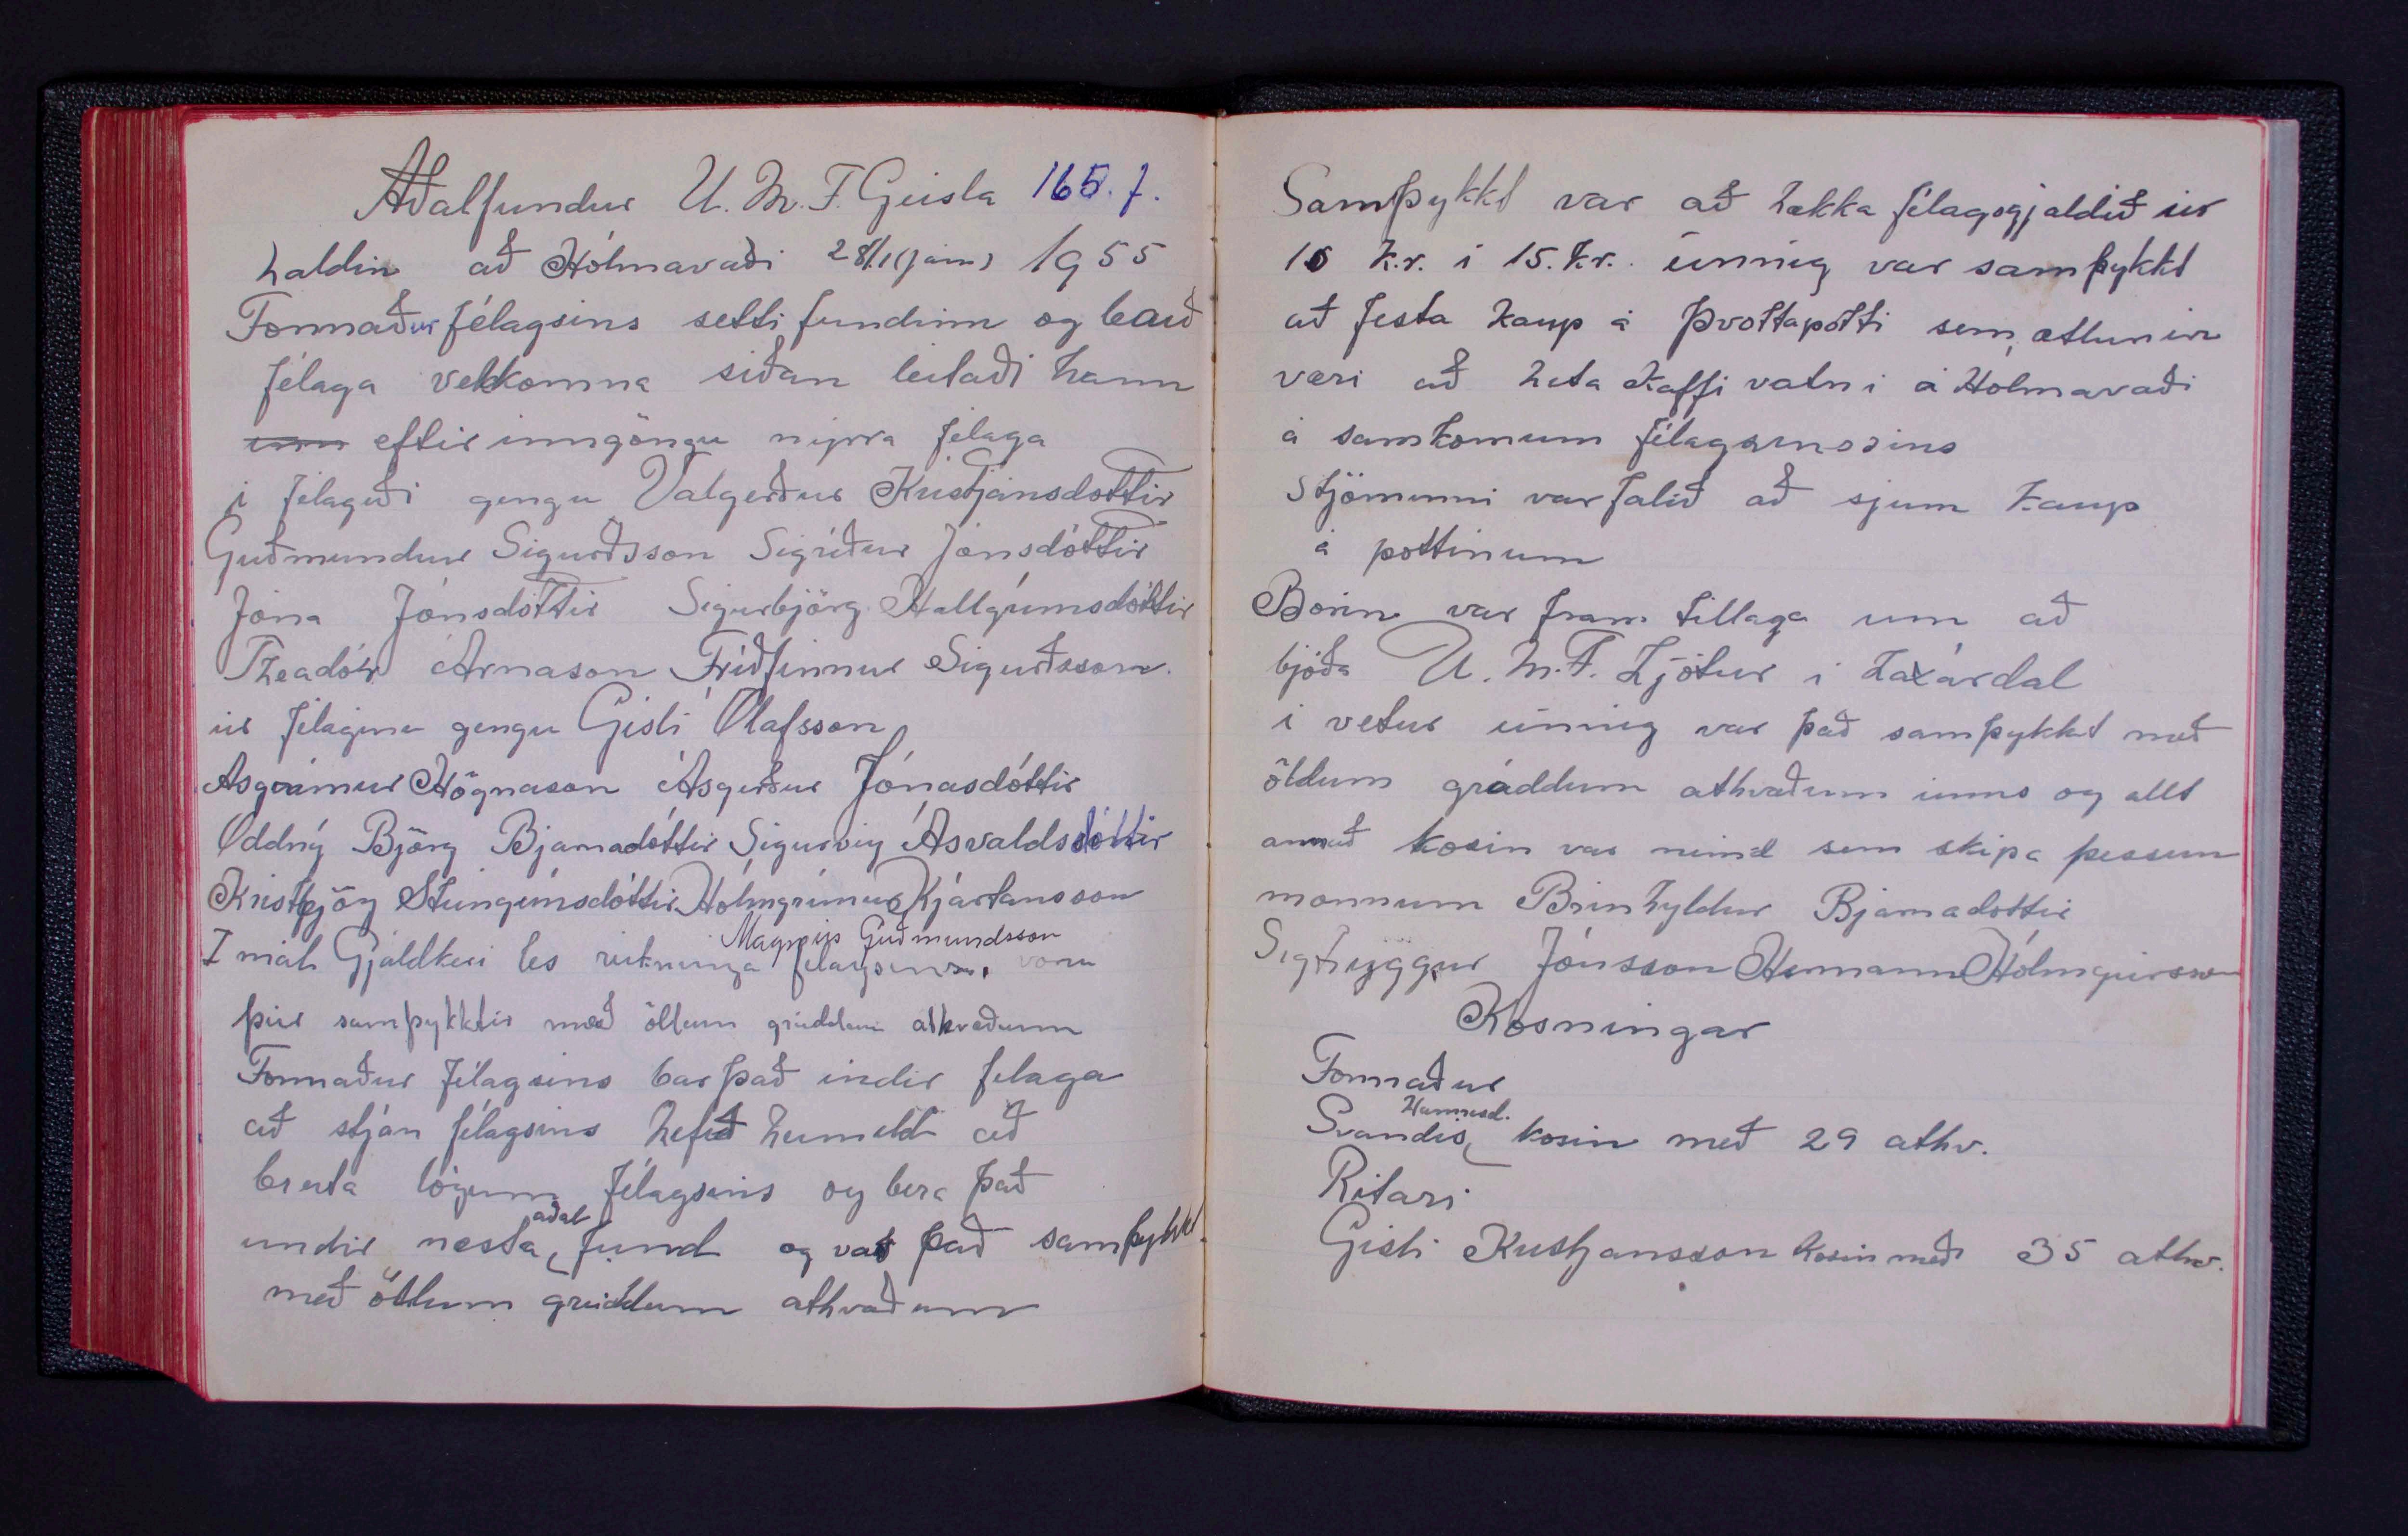 Aðalfundur U.M.F. Geisla 165. f.
haldin að Hólmavaði 28/1 (jan) 1955
Formaður félagsins setti fundinn og bauð
félaga velkomna síðan leitaði hann
inn eftir inngöngu nýrra félaga
í félagið gengu Valgerður Kristjánsdóttir
Guðmundur Sigurðsson Sigríður Jónsdóttir
Jóna Jónsdóttir Sigurbjörg Hallgrímsdóttir
Theadór Árnason Friðfinnur Sigurðsson.
úr félaginu gengu Gísli Ólafsson
Asgrímur Högnason Ásgerður Jónasdóttir
Oddný Björg Bjarnadóttir Sigurveig Ásvaldsdóttir
Kristbjörg Steingrímsdóttir Hólmgrímur Kjartansson
Magnús Guðmundsson
I mál Gjaldkeri les reikninga félagsins. voru
þeir samþykktir með öllum greiddum atkvæðum
Formaður félagsins bar það undir félaga
að stjórn félagsins hefið heimild að
breyta lögum félagsins og bera það
undir næsta aðal fund og var það samþykkt
með öllum greiddum athvæðum
Samþykkt var að hækka félagsgjaldið úr
10 kr. í 15. kr. einnig var samþykkt
að festa kaup á Þvottapotti sem ætlunin
væri að heta kaffi vatn i á Holmavaði
á samkomum félagsmosins
Stjórnunni var falið að sjum kaup
á pottinum
Borin var fram tillaga um að
bjóða U.M.F. Ljótur í Laxárdal
í vetur einnig var það samþykkt með
öldum gráddum athvæðum eins og allt
annað kosin var neind sem skipa þessum
monnum Brinhyldur Bjarnadottir
Sigtryggur Jónsson Hermann Hólmgeirsson
Kosningar
Formaður
Svandís Hannesd. kosin með 29 athv.
Ritari
Gísli Kristjansson kosin með 35 athv.